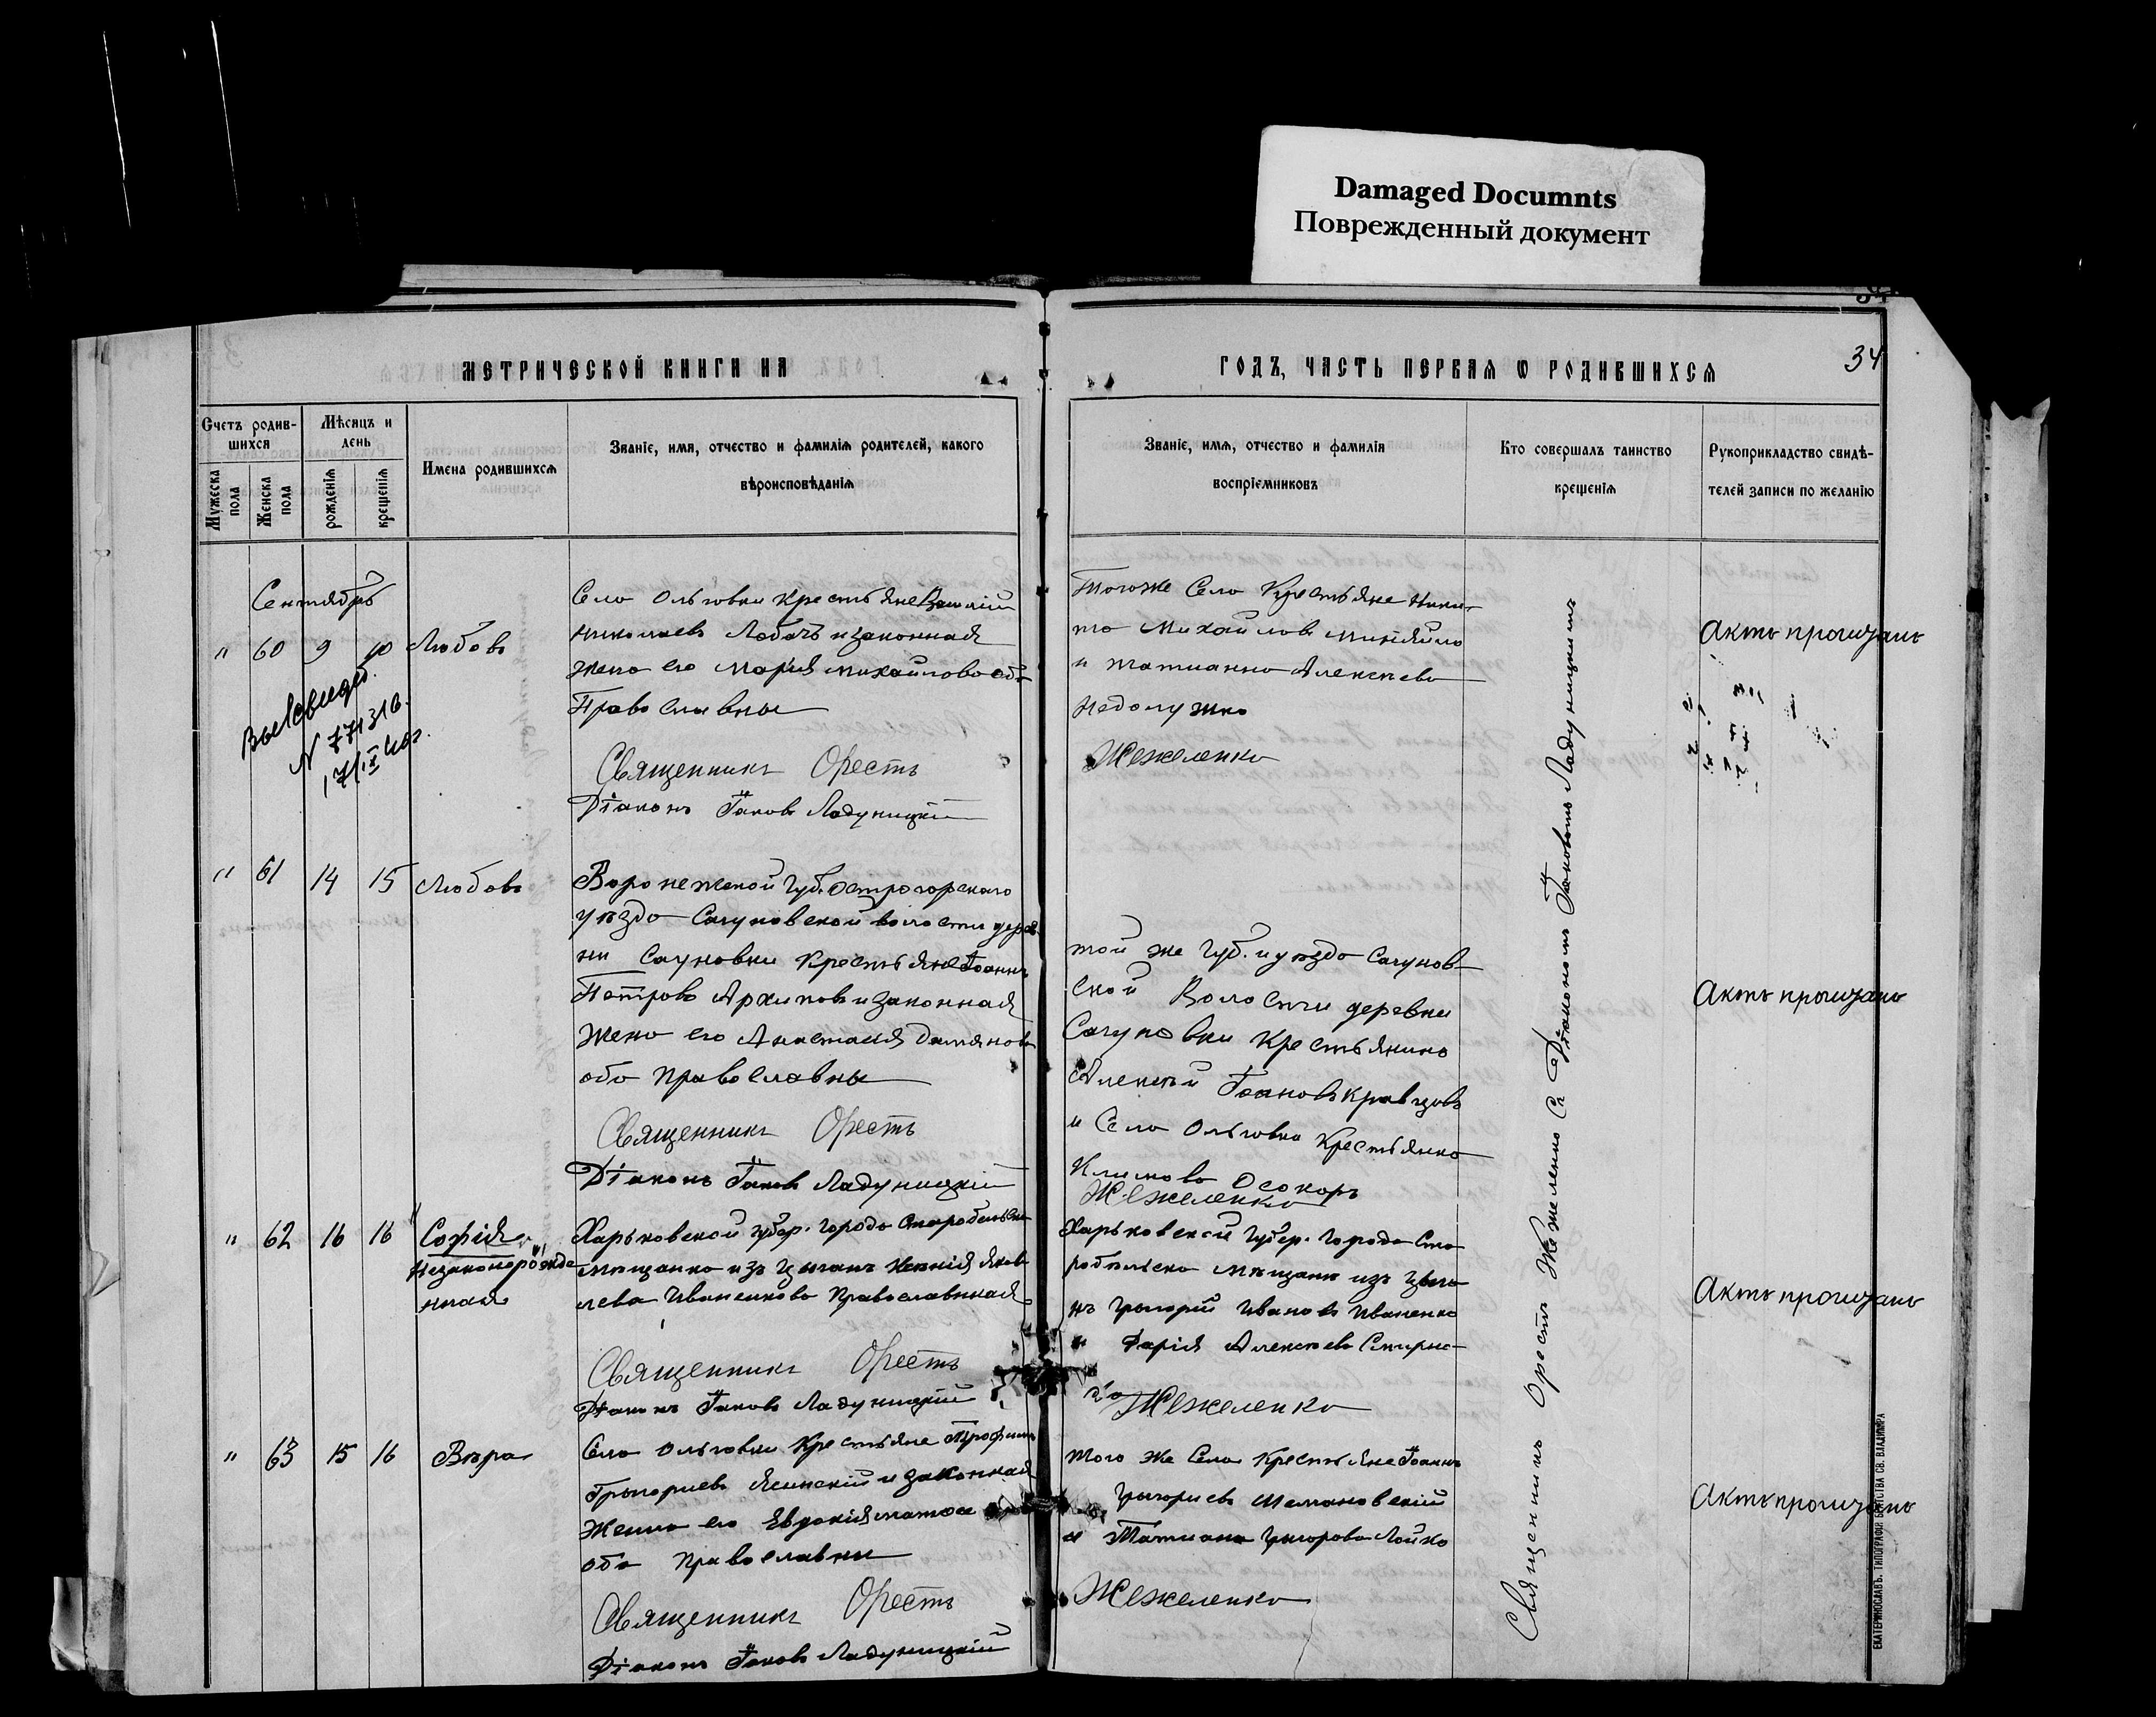 Damaged Documnts
Поврежденный документ
34
МЕТРИЧЕСКОЙ КНИГИ НА
ГОДЪ, ЧАСТЬ ПЕРВАЯ Ѡ РОДИВШИХСЯ
Счетъ родив-
шихся
Мужеска пола
Женска пола
Мѣсяцъ и
день
рожденія
крещенія
Имена родившихся
Званіе, имя, отчество и фамилія родителей, какого
вѣроисповѣданія
Званіе, имя, отчество и фамилія
воспріемниковъ
Кто совершалъ таинство
крещенія
Рукоприкладство свидѣ-
телей записи по желанію
Сентябрь
" 60 9 10 Любовь
Село Ольговки Крестьяне Василій
Николаевъ Лобачъ и законная
жена его Марія Михайлова оба
Православны
Священникъ Орестъ
Діаконъ Іаковъ Ладуницкій
Тогоже Села Крестьяне Ники-
та Михайловъ Миняйло
и Татианна Алексѣева
Недолужко
Жежеленко
Актъ прочитанъ
N 771316
" 61 14 15 Любовь
Воронежской Губ. Острогорскаго
уѣзда Сагуновской волости дерев-
ни Сагуновки Крестьяне Іоаннъ
Петровъ Архиповъ и законная
жена его Анастасія Даміанова
оба Православны
Священникъ Орестъ
Діаконъ Іаковъ Ладуницкій
той же Губ. и уѣзда Сагунов-
ской Волости деревни
Сагуновки Крестьянинъ
Алексѣй Іоановъ Кравцовъ
и Села Ольговки Крестьянка
Климова Осокоръ
Жежеленко
Актъ прочитанъ
" 62 16 16 Софія
Незаконорожде
нная
Харьковской Губер. города Старобѣльска
мѣщанка изъ Цыганъ Ксенія Яков-
лева Иваненкова Православнная
Священникъ Орестъ
Діаконъ Іаковъ Ладуницкій
Харьковской Губер. Города Ста
робѣльска мѣщане изъ Цыга
нъ Григорій Ивановъ Иваненко
и Дарія Алексѣева Смирно-
Жежеленко
Актъ прочитанъ
" 63 15 16 Вѣра
Села Ольговки Крестьяне Трофимъ
Григориевъ Ясинскій и законная
жена его Евдокія
оба Православны
Священникъ Орестъ
Діаконъ Іаковъ Ладуницкій
Того же Села Крестьяне Іоаннъ
Григориевъ Шемановскій
и Татиана Григорова Лойко
Жежеленко
Актъ прочитанъ
Священникъ Орестъ Жежеленко Съ Діакономъ Іаковомъ Ладуницкимъ
ЕКАТЕРИНОСЛАВЪ. ТИПОГРАФІЯ БРАТСТВА СВ. ВЛАДИМІРА